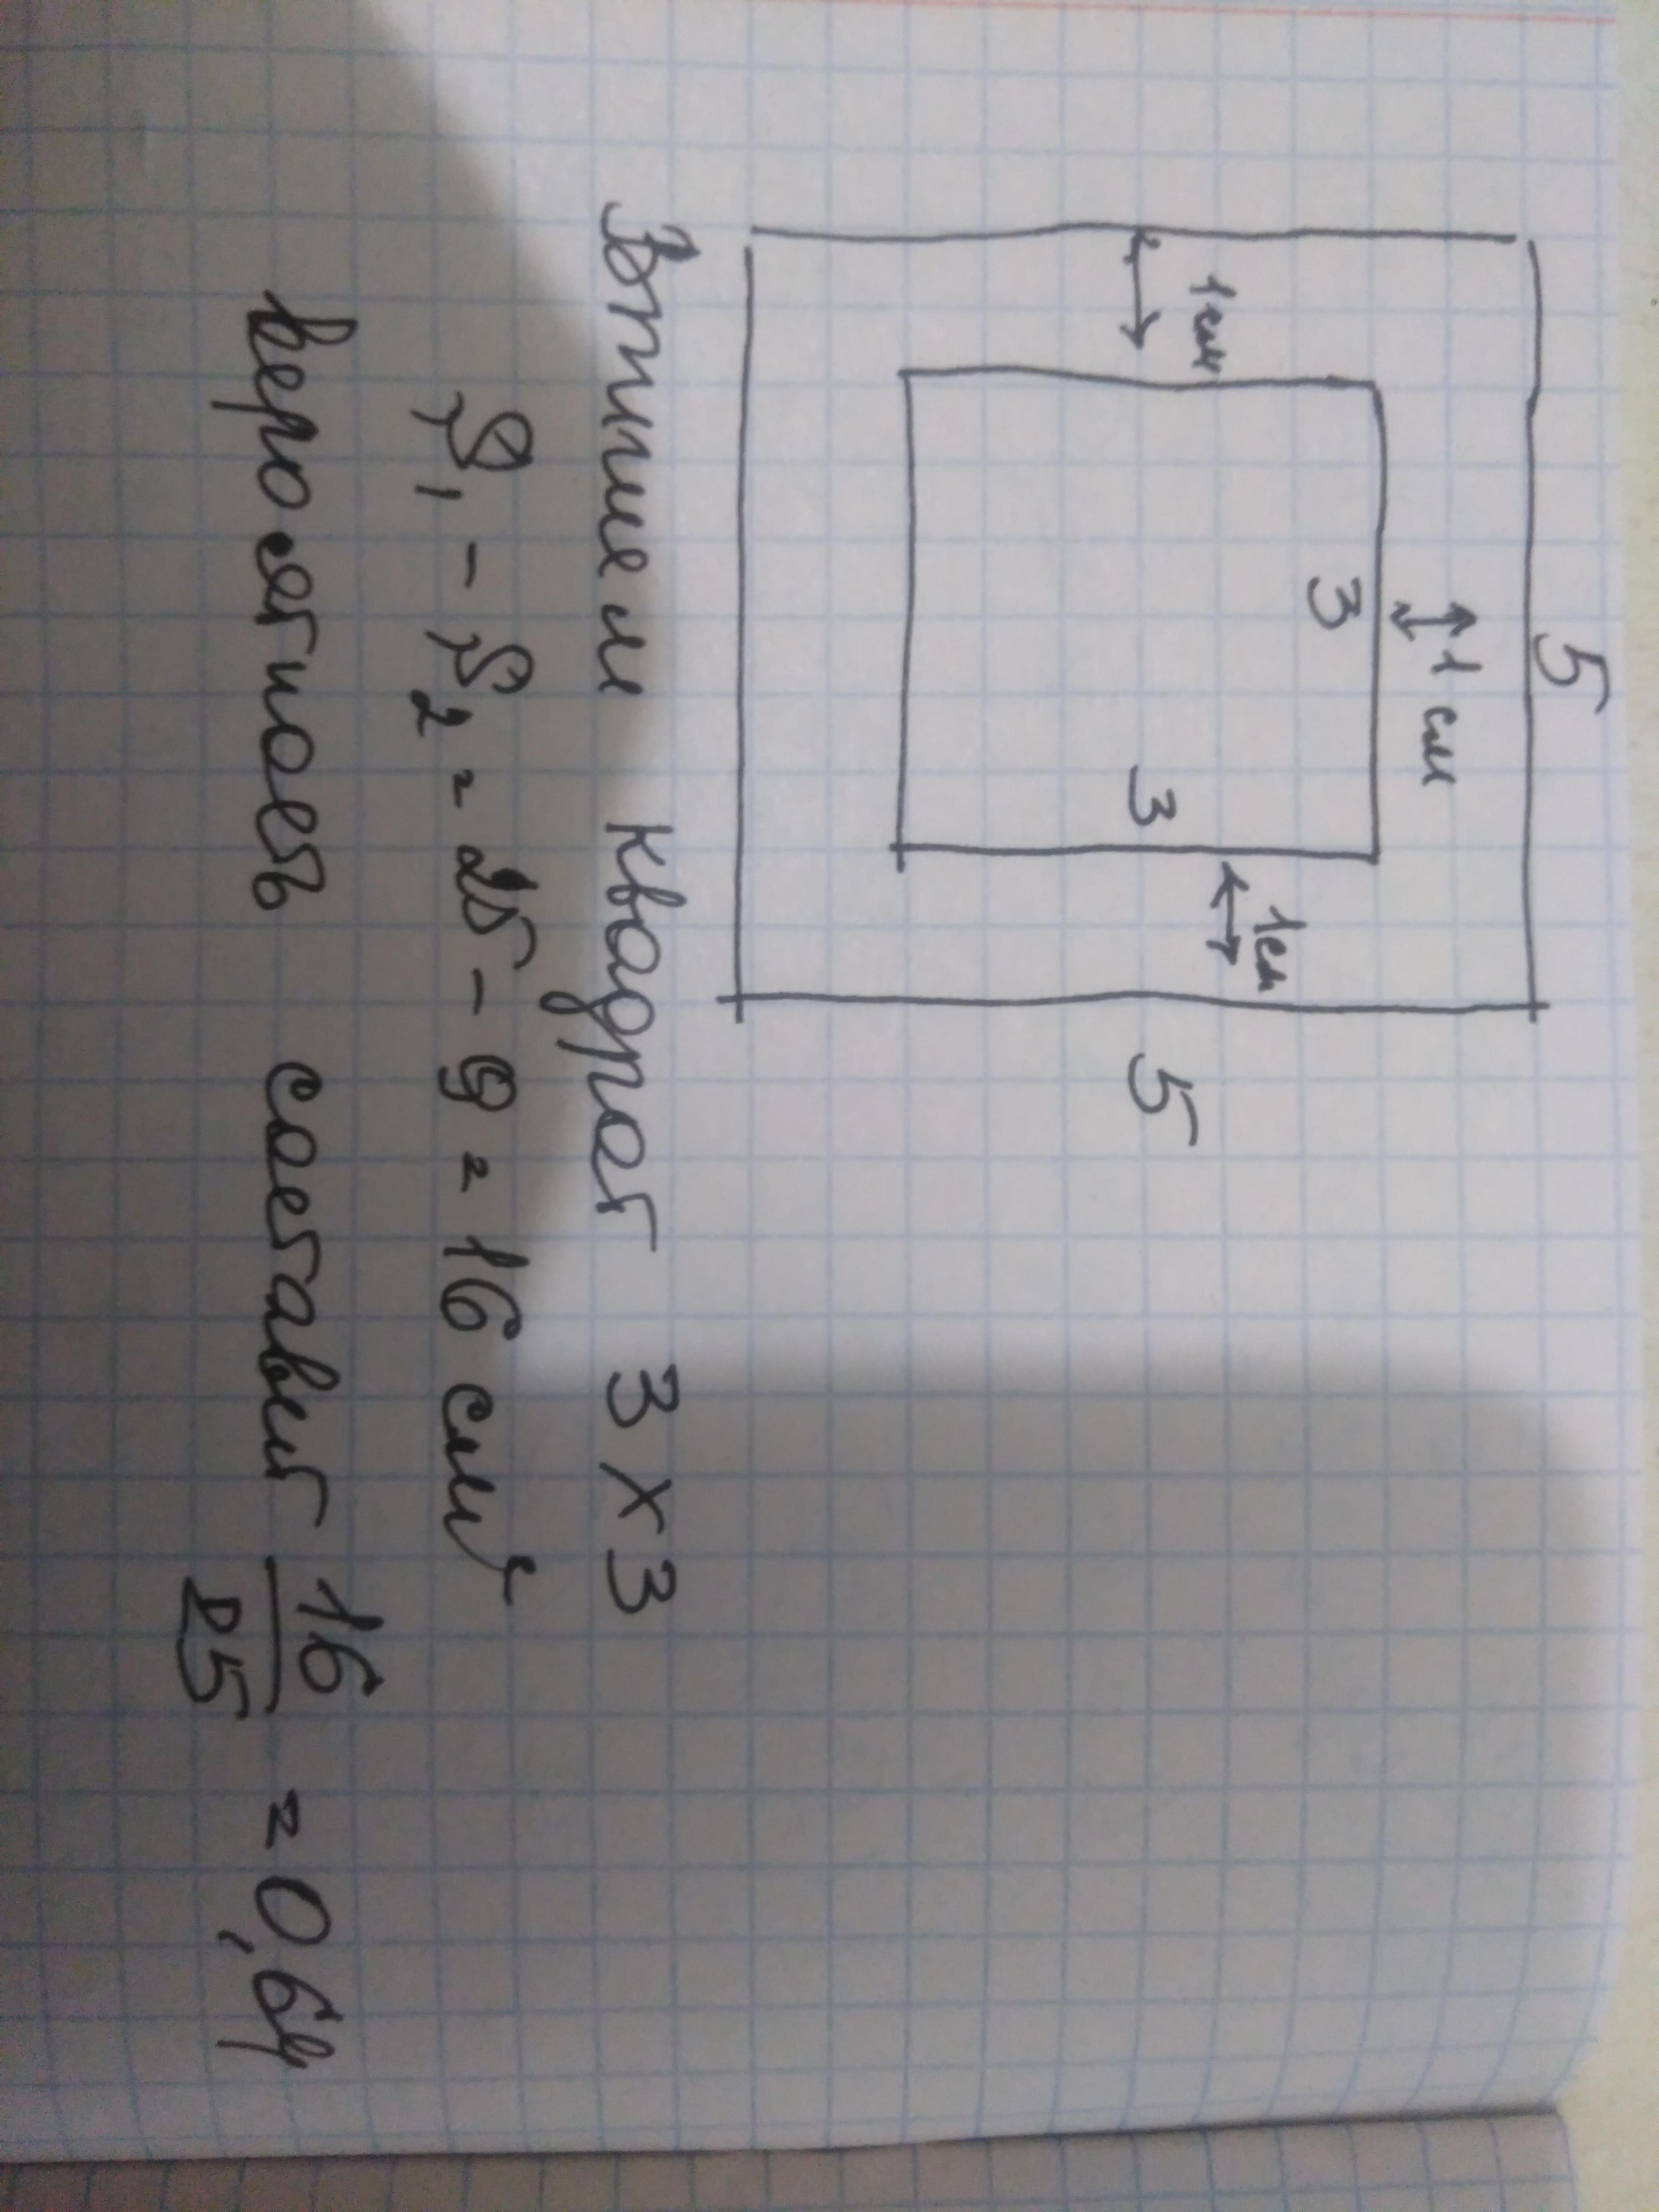 5
1 см
3
1 см
1 см
3
5
Впишем квадрат 3 x 3
S₁ - S₂ = 25 - 9 = 16 см²
вероятность составит 16/25 = 0,64